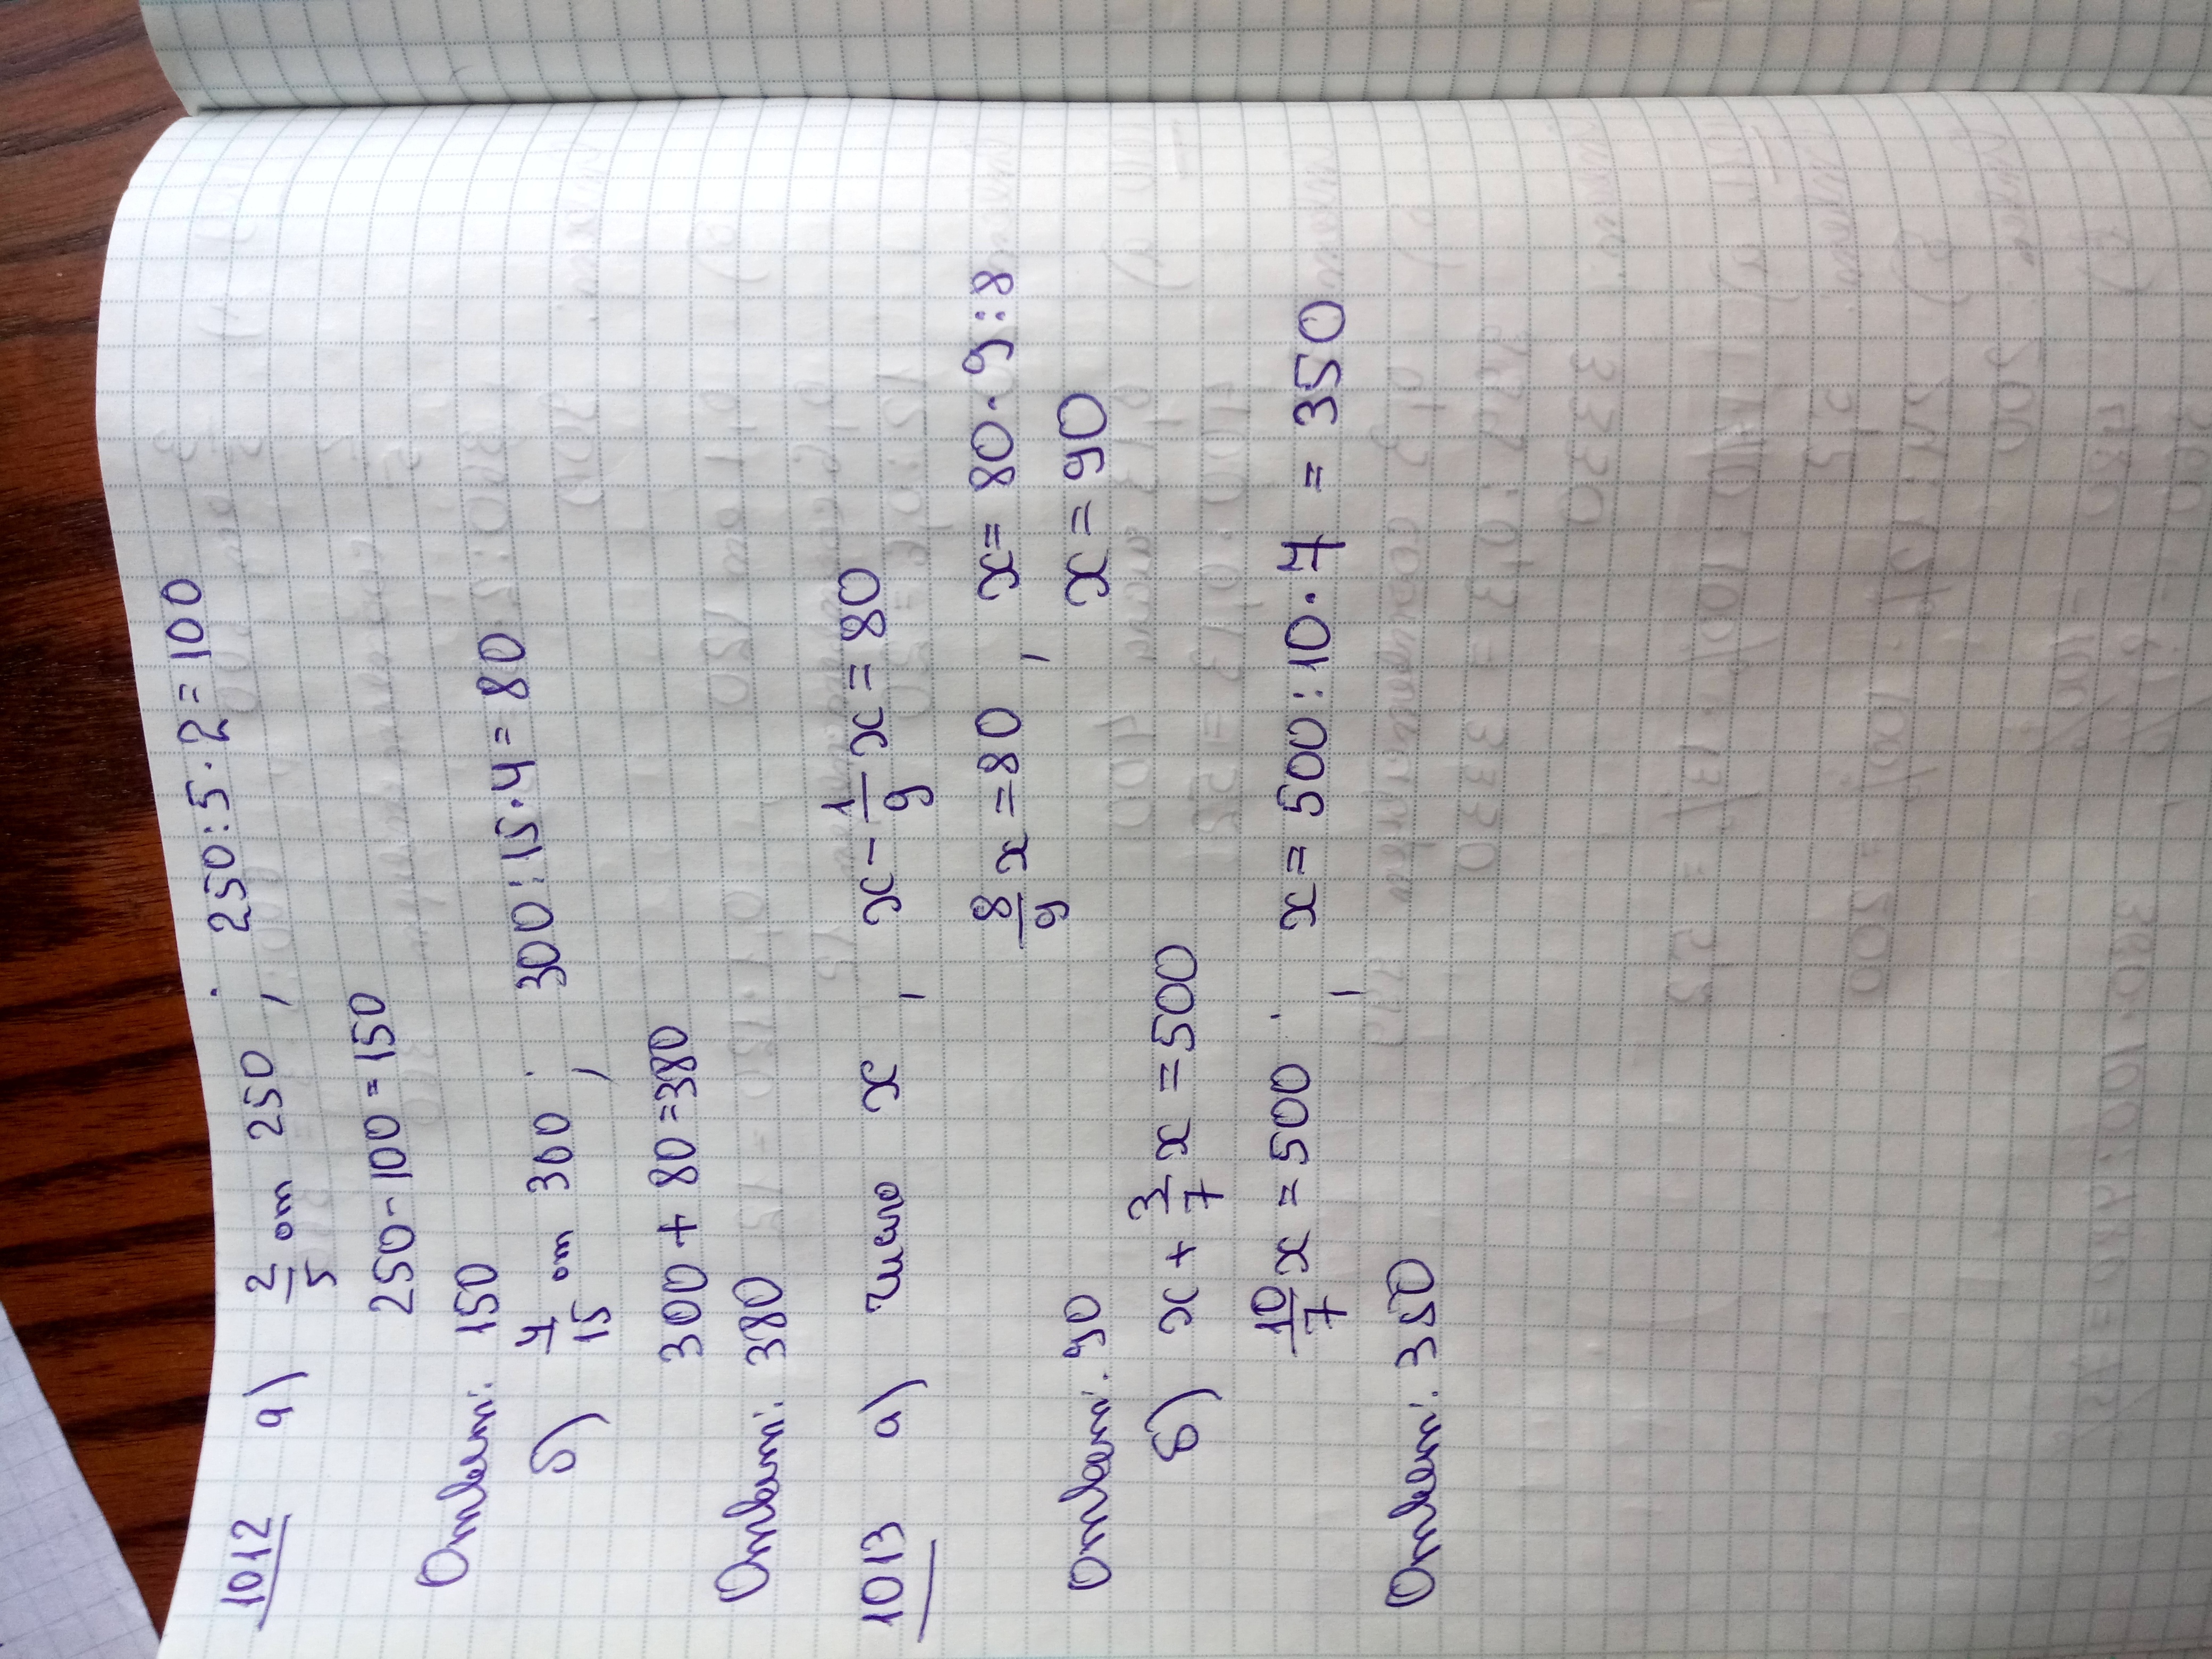 1012 а) 2/5 от 250 ; 250 : 5 · 2 = 100
250 - 100 = 150
Ответ: 150
б) 4/15 от 300 ; 300 : 15 · 4 = 80
300 + 80 = 380
Ответ: 380
1013 а) число x , x - 1/9 x = 80
8/9 x = 80 , x = 80 · 9 : 8
Ответ: 90 x = 90
б) x + 3/7 x = 500
10/7 x = 500 ; x = 500 : 10 · 7 = 350
Ответ: 350